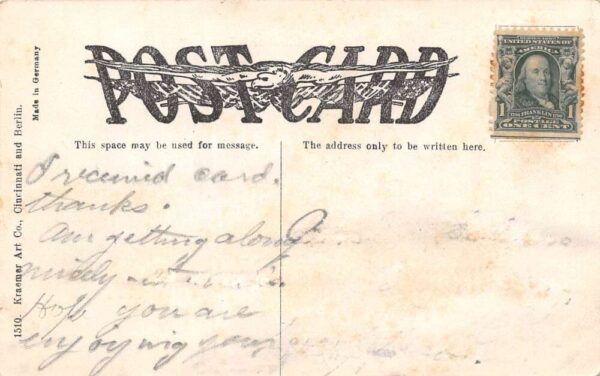 POST CARD
SERIES 1902
UNITED STATES OF
AMERICA
1 FRANKLIN 1
POSTAGE
ONE CENT
This space may be used for message.
The address only to be written here.
I received card.
thanks.
Am getting along
nicely
Hope you are
enjoying your
1510. Kraemer Art Co., Cincinnati and Berlin.
Made in Germany